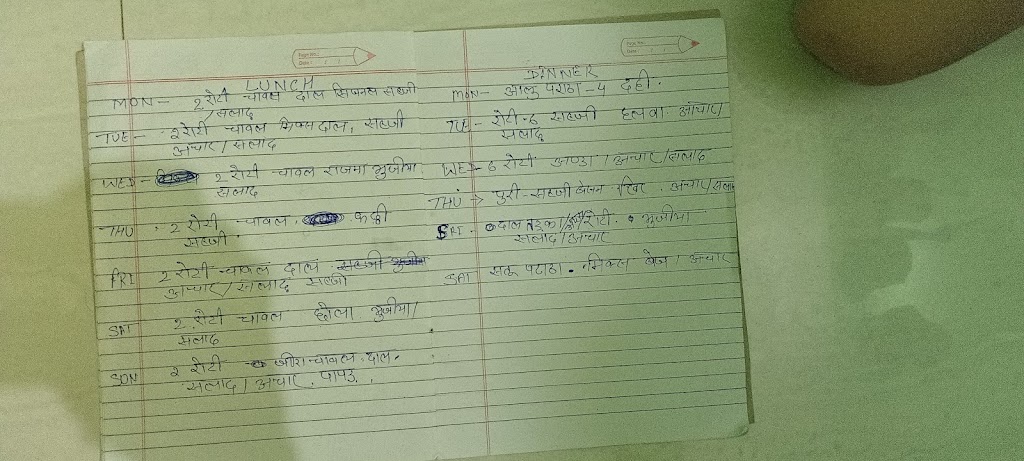 LUNCH
MON- 2 रोटी चावल दाल सब्जी
/सलाद
TUE- 2 रोटी चावल मिक्स दाल, सब्जी
अचार/सलाद
WED- 2 रोटी चावल राजमा भुजीया
सलाद
THU . 2 रोटी चावल. कढ़ी
सब्जी.
FRI 2 रोटी चावल दाल
अचार/सलाद सब्जी
SAT 2. रोटी चावल छोला भुजीया/
सलाद
SON 2 रोटी जीरा चावल. दाल.
सलाद/अचार. पापड़.
DINNER
MON- आलु पराठा-4 दही.
TUE- रोटी-6 सब्जी हलवा अचार/
सलाद
WED- 6 रोटी अण्डा/अचार/सलाद
THU पुरी-सब्जी खीर. अचार/सलाद
FRI. दाल तड़का/रोटी. भुजीया
सलाद/अचार
SAT सतु पराठा. मिक्स वेज/अचार